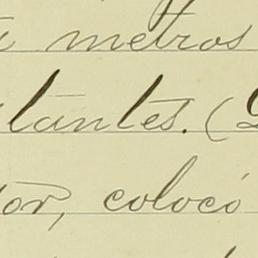 metros
tantes. (
or, colocó